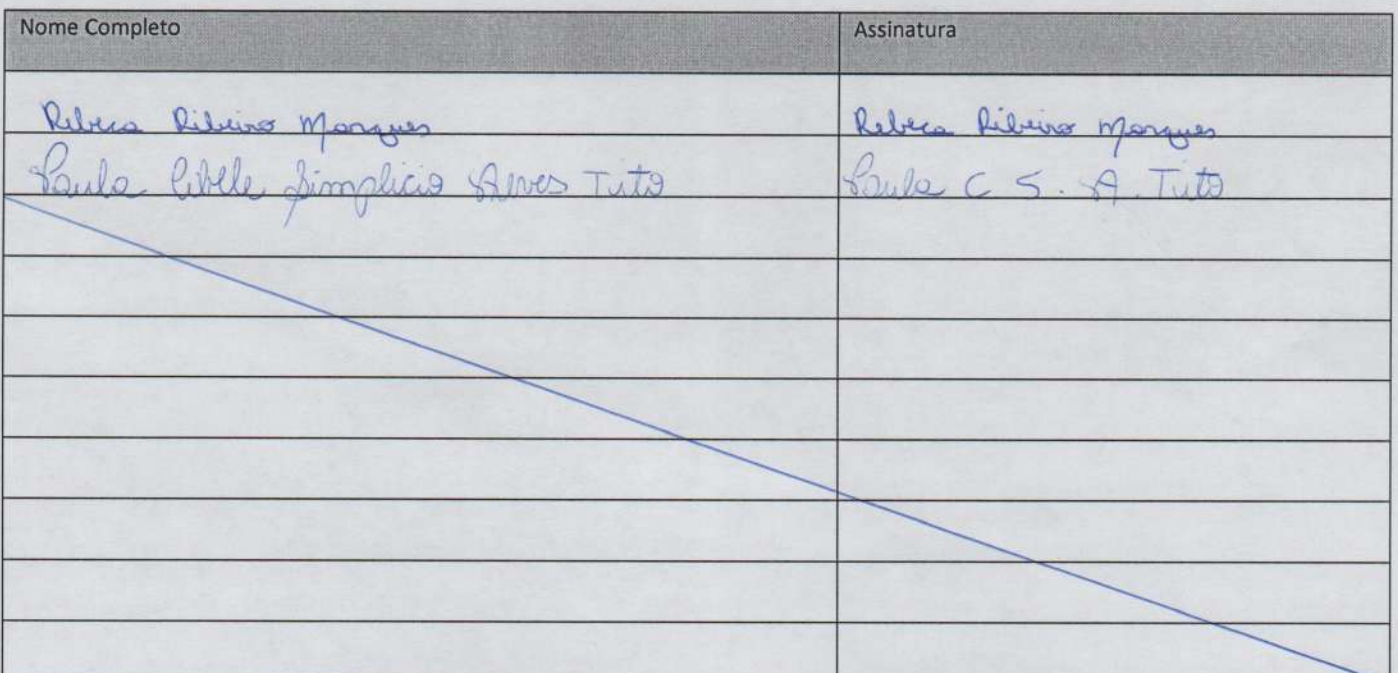 Nome Completo Assinatura
Rebeca Ribeiro Marques Rebeca Ribeiro Marques
Paula Cibelle Simplicio Alves Tuto Paula C S. A. Tuto